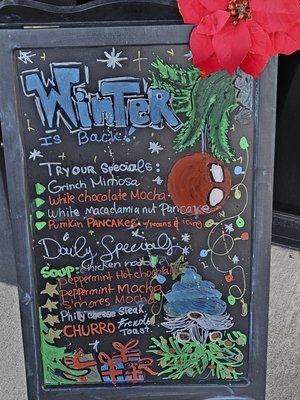 WinTer
is Back!
Try our Specials:
Grinch Mimosa
White Chocolate Mocha
White Macadamia nut Pancake
Pumkin PANCAKES
Daily Specials
Soup: Chicken
Peppermint Hot chocolate
Peppermint Mocha
S'mores Mocha
Philly cheese steak.
CHURRO French
Toast.